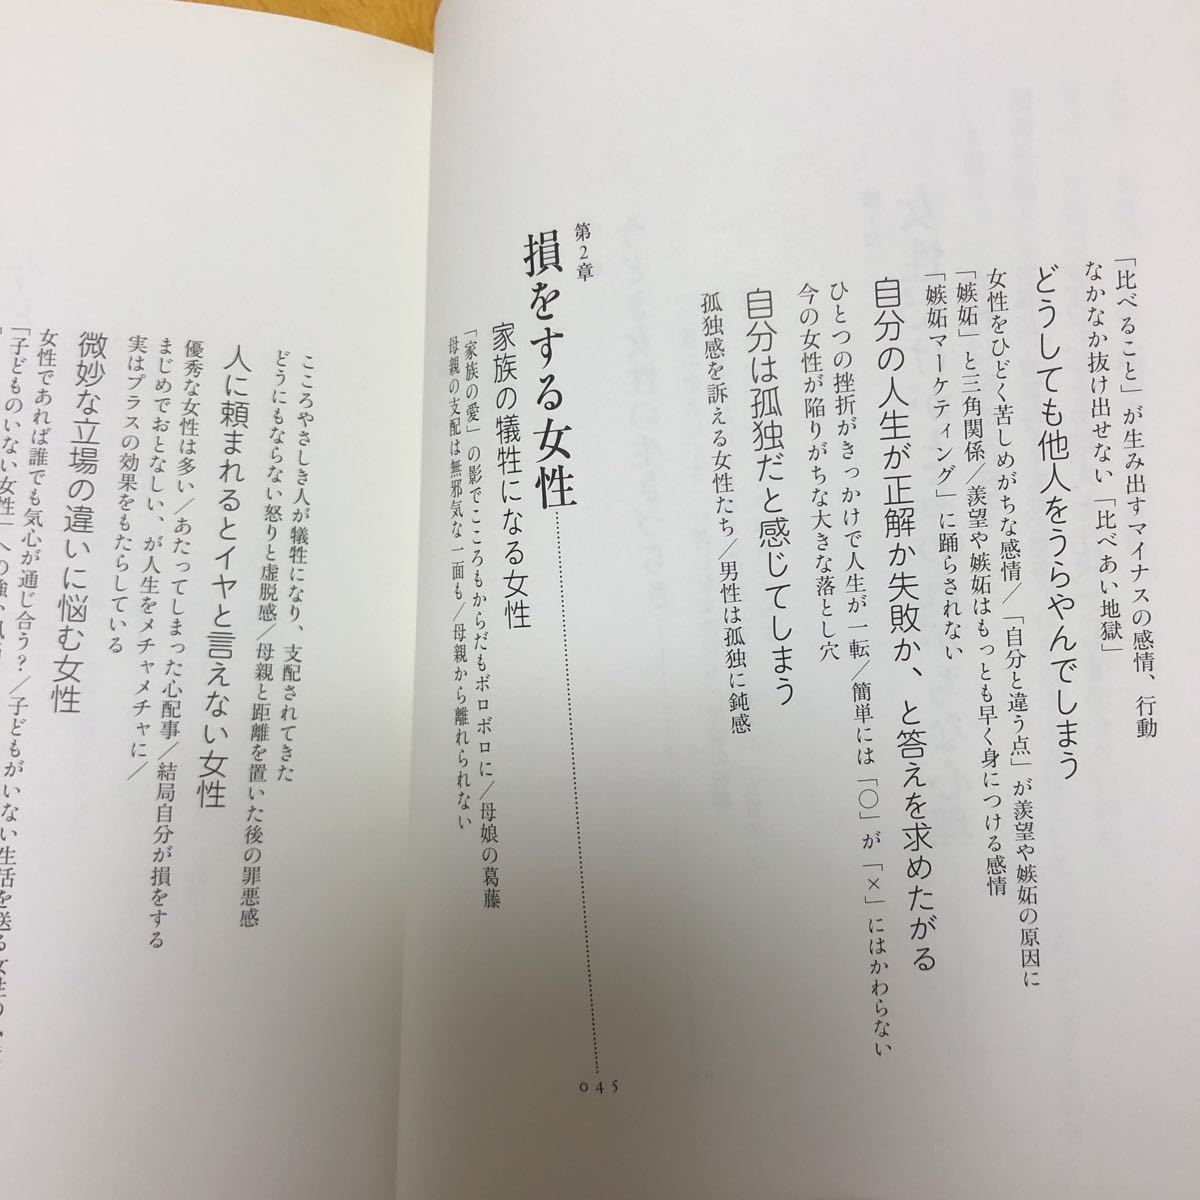 「比べること」が生み出すマイナスの感情、行動
なかなか抜け出せない「比べあい地獄」
どうしても他人をうらやんでしまう
女性をひどく苦しめがちな感情/「自分と違う点」が羨望や嫉妬の原因に
「嫉妬」と三角関係/羨望や嫉妬はもっとも早く身につける感情
「嫉妬マーケティング」に踊らされない
自分の人生が正解か失敗か、と答えを求めたがる
ひとつの挫折がきっかけで人生が一転/簡単には「○」が「×」にはかわらない
今の女性が陥りがちな大きな落とし穴
自分は孤独だと感じてしまう
孤独感を訴える女性たち/男性は孤独に鈍感
第2章
損をする女性 045
家族の犠牲になる女性
「家族の愛」の影でこころもからだもボロボロに/母娘の葛藤
母親の支配は無邪気な一面も/母親から離れられない
こころやさしき人が犠牲になり、支配されてきた
どうにもならない怒りと虚脱感/母親と距離を置いた後の罪悪感
人に頼まれるとイヤと言えない女性
優秀な女性は多い/あたってしまった心配事/結局自分が損をする
まじめでおとなしい、が人生をメチャメチャに/
実はプラスの効果をもたらしている
微妙な立場の違いに悩む女性
女性であれば誰でも気心が通じ合う?/子どもがいない生活を送る女性の
「子どものいない女性」への強い